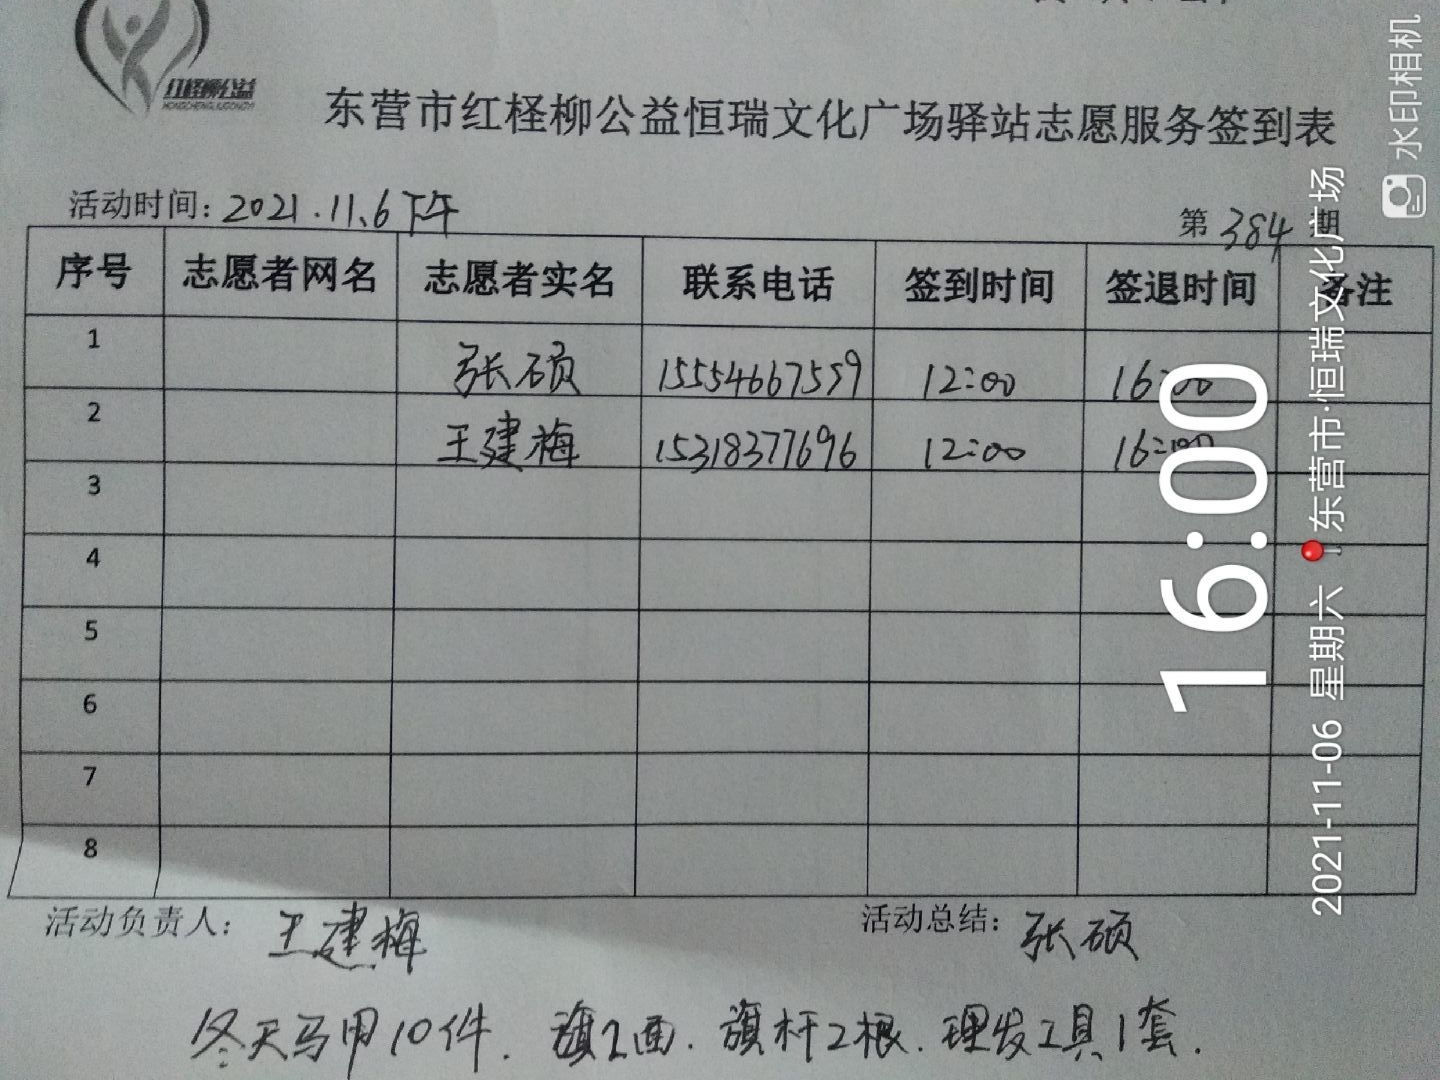 红柽柳公益
HONGCHENGLIUGONGYI
东营市红柽柳公益恒瑞文化广场驿站志愿服务签到表
活动时间：2021.11.6下午
第384期
序号 志愿者网名 志愿者实名 联系电话 签到时间 签退时间 备注
1 张硕 15554667559 12:00 16:00
2 王建梅 15318377696 12:00 16:00
3
4
5
6
7
8
活动负责人：王建梅 活动总结：张硕
冬天马甲10件.旗2面.旗杆2根.理发工具1套.
16:00
2021-11-06 星期六 东营市·恒瑞文化广场
水印相机